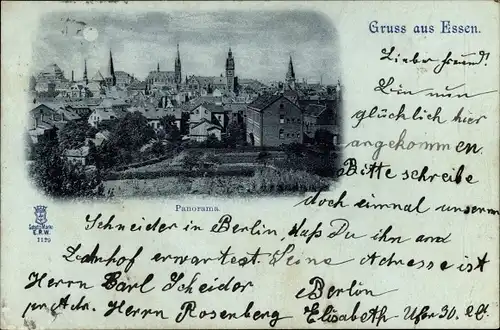 Gruss aus Essen.
Lieber Freund!
Bin nun
glücklich hier
angekommen.
Bitte schreibe
doch einmal unserm
Panorama.
Schutz-Marke
E.R.W.
1129
Schneider in Berlin, daß Du ihn am
Bahnhof erwartest. Seine Adresse ist
Herrn Carl Scheidor Berlin
pr. Adr. Herrn Rosenberg Elisabeth-Ufer 30.